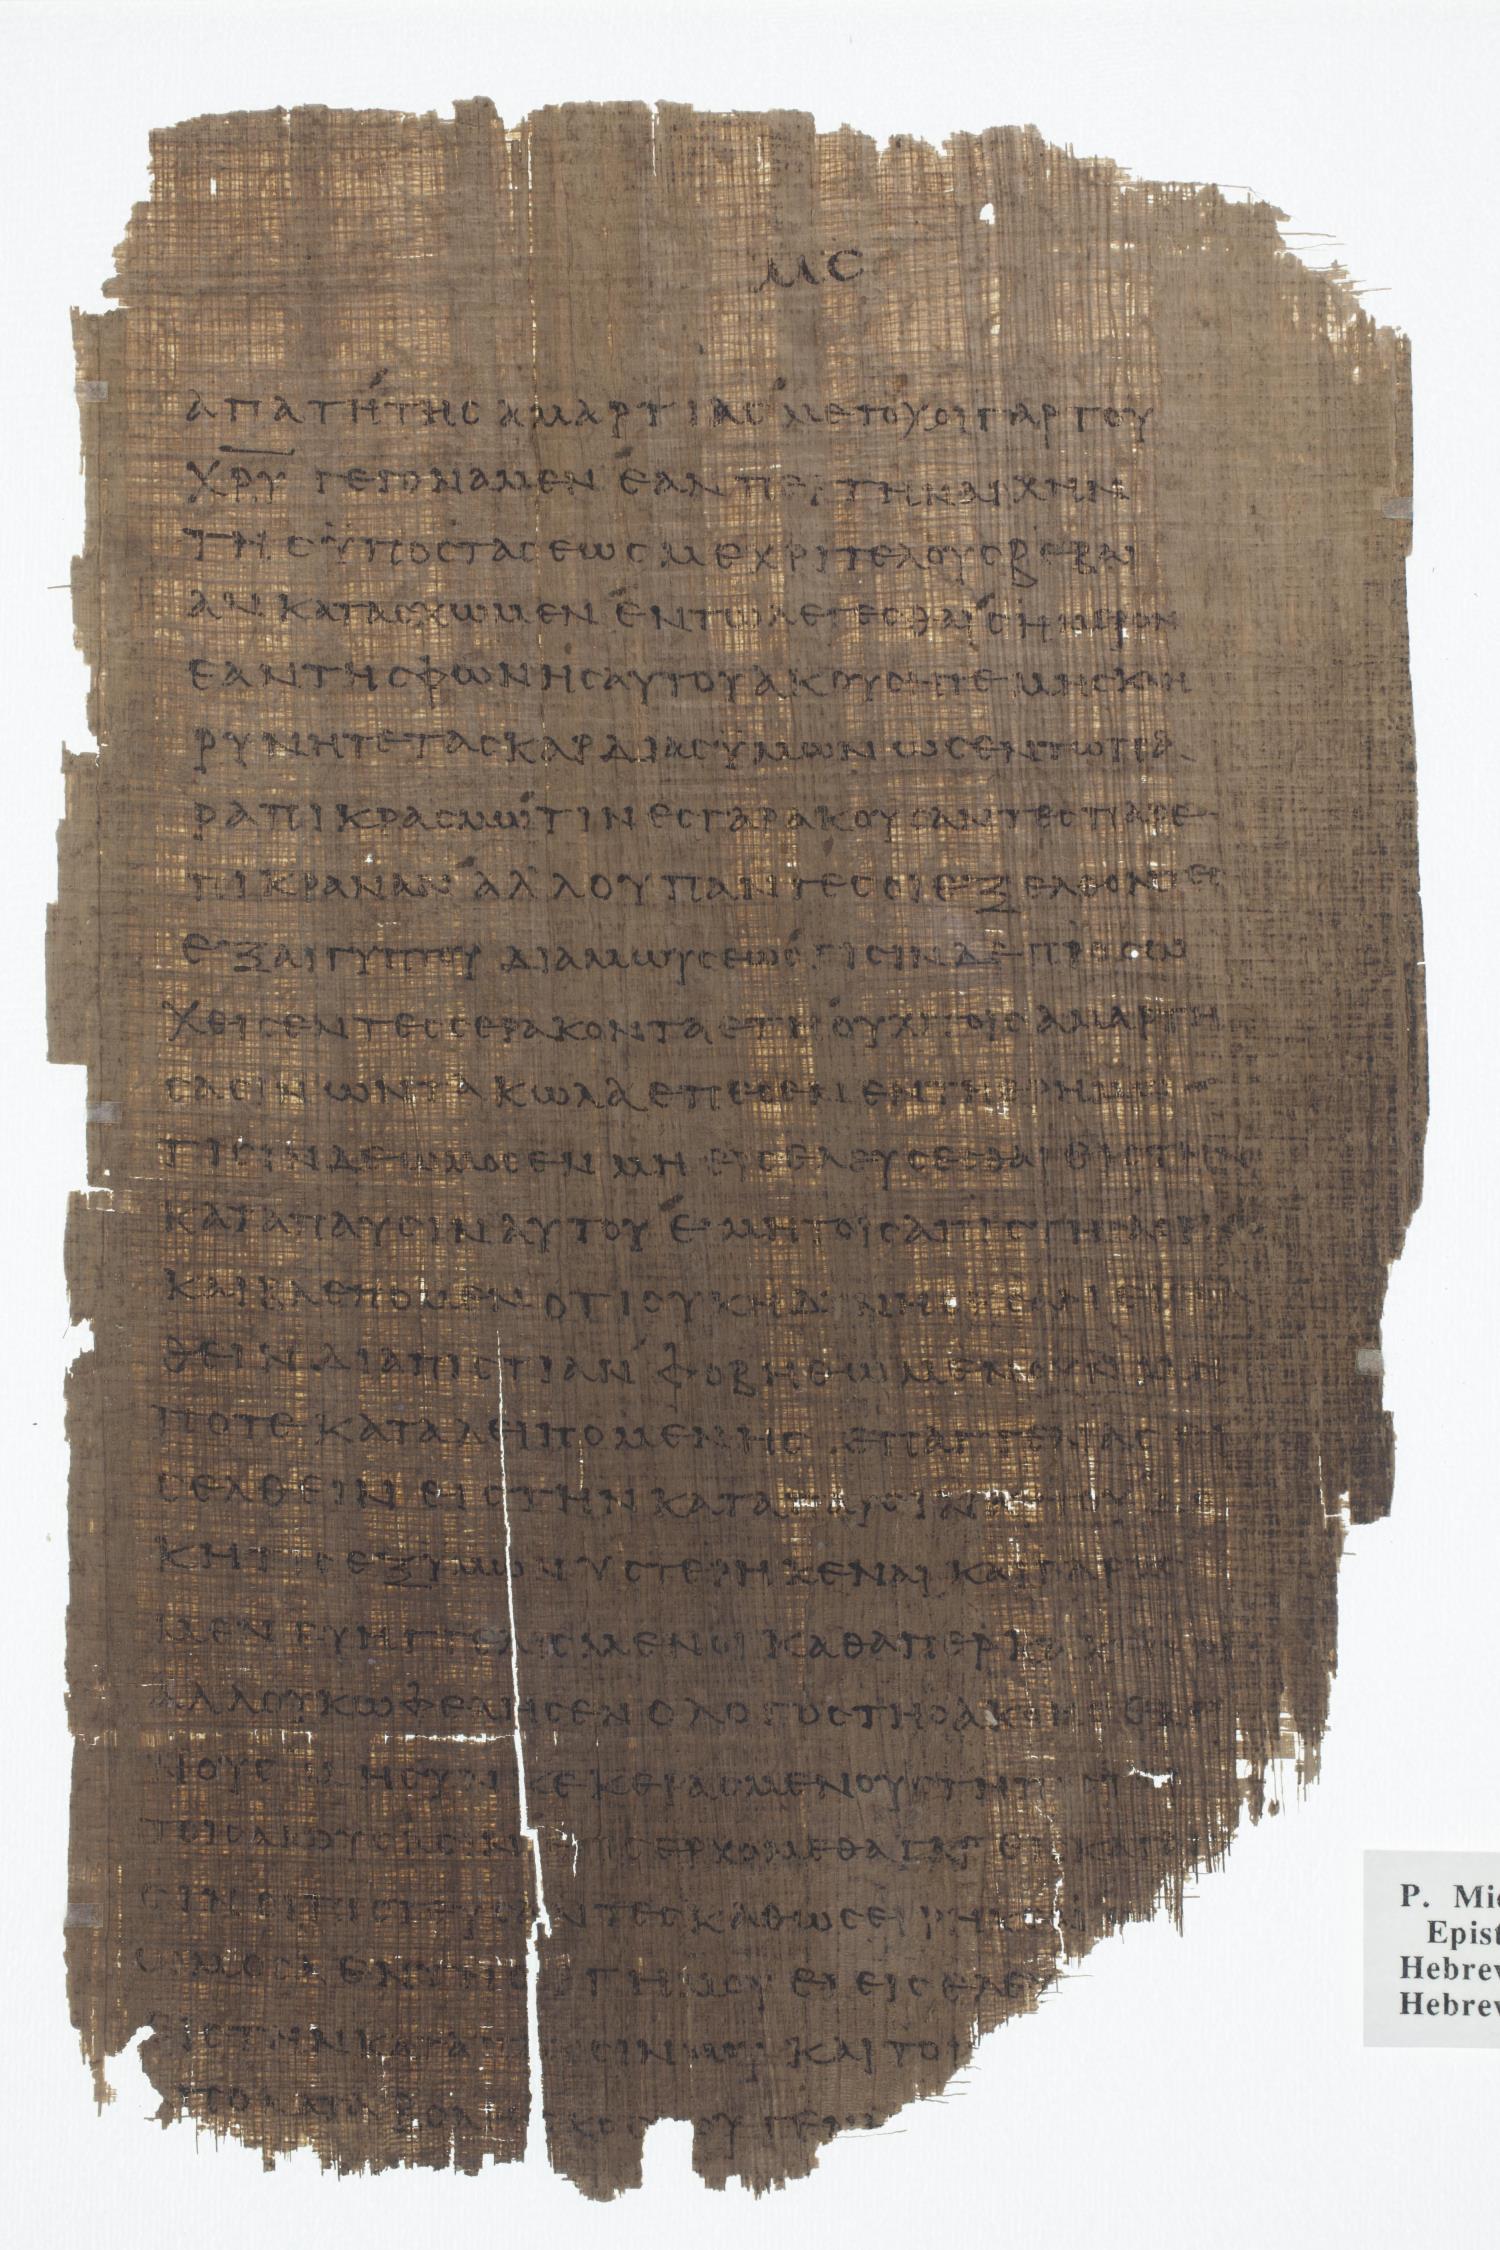 μϛ
απατη της αμαρτιας μετοχοι γαρ του
χρυ γεγοναμεν εαν περ την αρχην
της ϋποστασεως μεχρι τελους βεβαι
αν κατασχωμεν εν τω λεγεσθαι σημερον
εαν της φωνης αυτου ακουσητε μη σκλη
ρυνητε τας καρδιας ϋμων ως εν τω πα
ραπικρασμω τινες γαρ ακουσαντες παρε
πικραναν αλλ ου παντες οι εξελθοντες
εξ αιγυπτου δια μωυσεως τισιν δε προσω
χθεισεν τεσσερακοντα ετη ουχι τοις αμαρτη
σασιν ων τα κωλα επεσεν εν τη ερημω
τισιν δε ωμοσεν μη εισελευσεσθαι εις την
καταπαυσιν αυτου ει μη τοις απιστησασιν
και βλεπομεν οτι ουκ ηδυνηθησαν εισελ
θειν δι απιστιαν φοβηθωμεν ουν μη
ποτε καταλειπομενης επαγγελιας ει
σελθειν εις την καταπαυσιν αυτου δο
κη τις εξ ϋμων υστερηκεναι και γαρ εσ
μεν ευηγγελισμενοι καθαπερ
αλλ ουκ ωφελησεν ο λογος της ακοης
κεκερασμενους τη πιστει
τοις ακουσασιν εισερχομεθα γαρ
σιν οι πιστευσαντες καθως ειρηκεν
ωμοσα εν τη οργη μου ει εισελευ
εις την καταπαυσιν μου και τοι
απο καταβολης κοσμου γενη
P. Mic
Epist
Hebrew
Hebrew